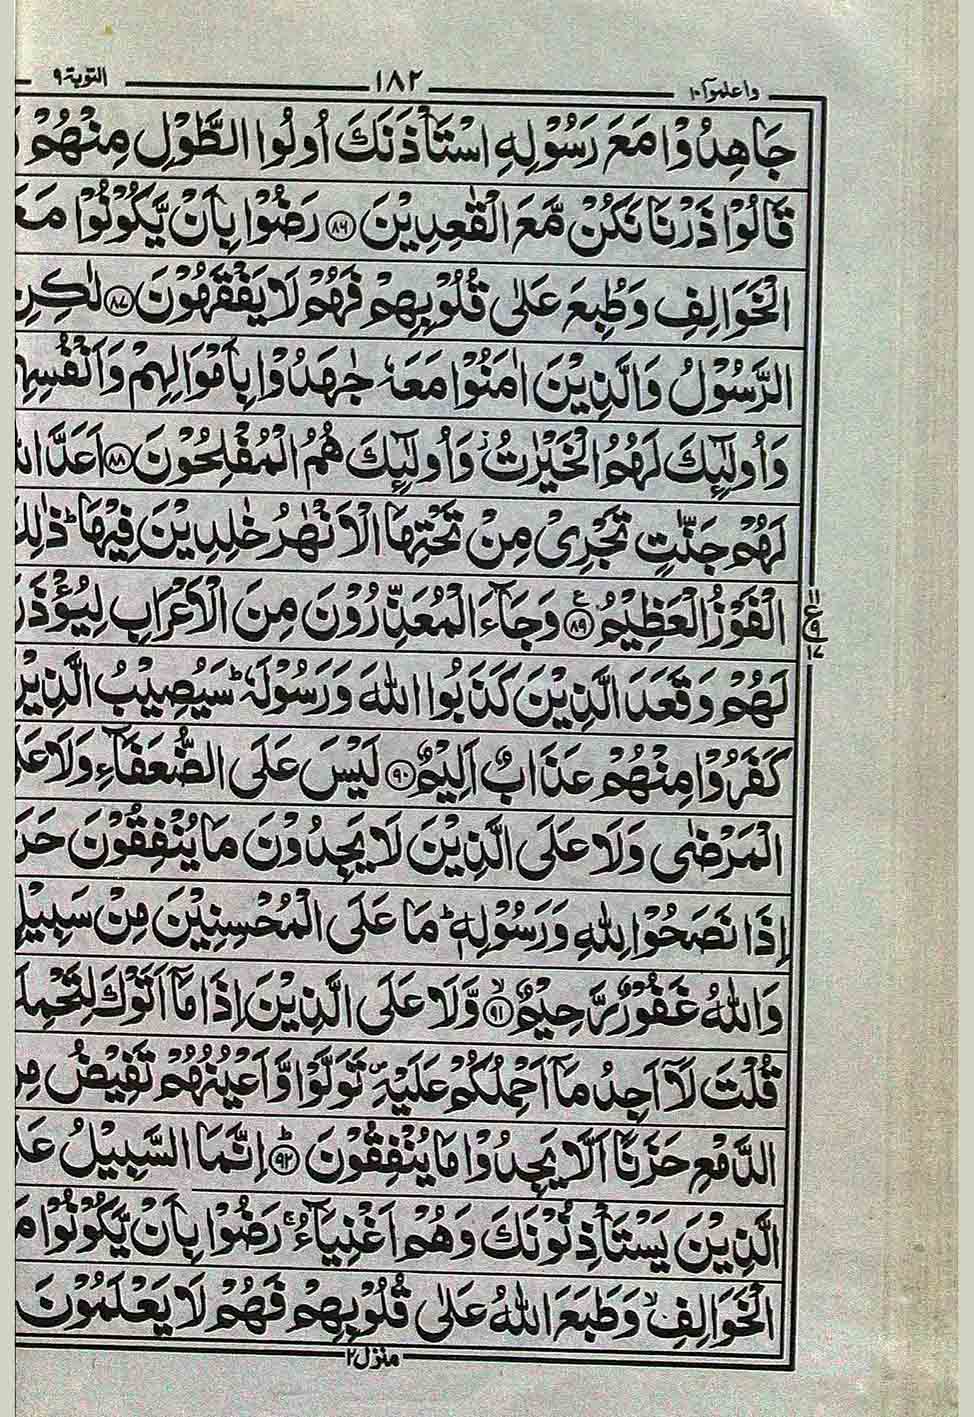 واعلموا ١٠ ١٨٢ التوبة ٩
جَاهِدُوْا مَعَ رَسُوْلِهِ اسْتَاْذَنَكَ اُولُوا الطَّوْلِ مِنْهُمْ
قَالُوْا ذَرْنَا نَكُنْ مَّعَ الْقٰعِدِيْنَ ﴿٨٦﴾ رَضُوْا بِاَنْ يَّكُوْنُوْا مَعَ
الْخَوَالِفِ وَطُبِعَ عَلٰى قُلُوْبِهِمْ فَهُمْ لَا يَفْقَهُوْنَ ﴿٨٧﴾ لٰكِنِ
الرَّسُوْلُ وَالَّذِيْنَ اٰمَنُوْا مَعَهٗ جٰهَدُوْا بِاَمْوَالِهِمْ وَاَنْفُسِهِ
وَاُولٰٓئِكَ لَهُمُ الْخَيْرٰتُ ز وَاُولٰٓئِكَ هُمُ الْمُفْلِحُوْنَ ﴿٨٨﴾ اَعَدَّ
لَهُمْ جَنّٰتٍ تَجْرِىْ مِنْ تَحْتِهَا الْاَنْهٰرُ خٰلِدِيْنَ فِيْهَا ط ذٰلِكَ
الْفَوْزُ الْعَظِيْمُ ﴿٨٩﴾ ع وَجَآءَ الْمُعَذِّرُوْنَ مِنَ الْاَعْرَابِ لِيُؤْذَنَ
١١ ع ٩ ١٧
لَهُمْ وَقَعَدَ الَّذِيْنَ كَذَبُوا اللّٰهَ وَرَسُوْلَهٗ ط سَيُصِيْبُ الَّذِيْنَ
كَفَرُوْا مِنْهُمْ عَذَابٌ اَلِيْمٌ ﴿٩٠﴾ لَيْسَ عَلَى الضُّعَفَآءِ وَلَا عَلَى
الْمَرْضٰى وَلَا عَلَى الَّذِيْنَ لَا يَجِدُوْنَ مَا يُنْفِقُوْنَ حَرَ
اِذَا نَصَحُوْا لِلّٰهِ وَرَسُوْلِهٖ ط مَا عَلَى الْمُحْسِنِيْنَ مِنْ سَبِيْلٍ
وَاللّٰهُ غَفُوْرٌ رَّحِيْمٌ ﴿٩١﴾ لا وَّلَا عَلَى الَّذِيْنَ اِذَا مَآ اَتَوْكَ لِتَحْمِلَ
قُلْتَ لَآ اَجِدُ مَآ اَحْمِلُكُمْ عَلَيْهِ ص تَوَلَّوْا وَّاَعْيُنُهُمْ تَفِيْضُ مِنَ
الدَّمْعِ حَزَنًا اَلَّا يَجِدُوْا مَا يُنْفِقُوْنَ ﴿٩٢﴾ ط اِنَّمَا السَّبِيْلُ عَلَى
الَّذِيْنَ يَسْتَاْذِنُوْنَكَ وَهُمْ اَغْنِيَآءُ ج رَضُوْا بِاَنْ يَّكُوْنُوْا مَ
الْخَوَالِفِ لا وَطَبَعَ اللّٰهُ عَلٰى قُلُوْبِهِمْ فَهُمْ لَا يَعْلَمُوْنَ
منزل ٢